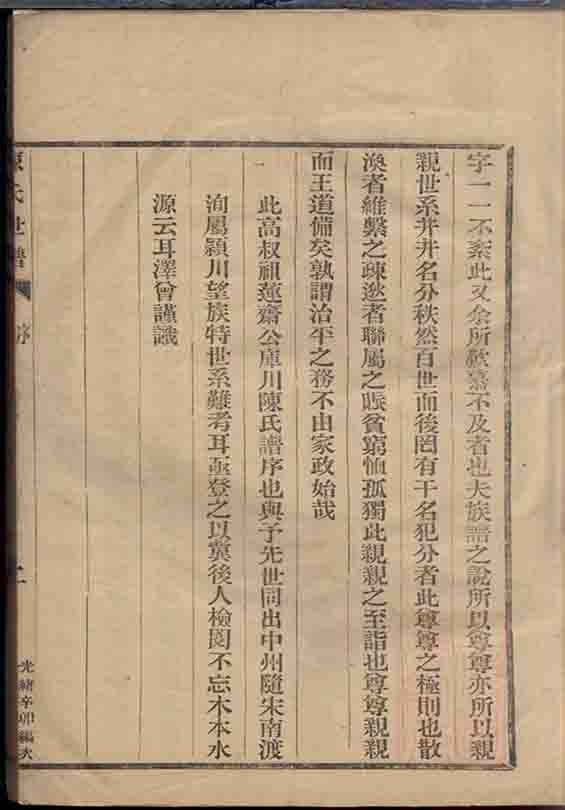 字一一不紊此又余所歎慕不及者也夫族譜之說所以尊尊亦所以親
親世系井井名分秩然百世而後罔有干名犯分者此尊尊之極則也散
渙者維繫之疎逖者聯屬之賑貧窮恤孤獨此親親之至誼也尊尊親親
而王道備矣孰謂治平之務不由家政始哉
此高叔祖蓮齋公庫川陳氏譜序也與予先世同出中州隨宋南渡
洵屬潁川望族特世系難考耳亟登之以冀後人檢閱不忘木本水
源云耳澤曾謹識
氏世譜
序
二
光緒辛卯編次